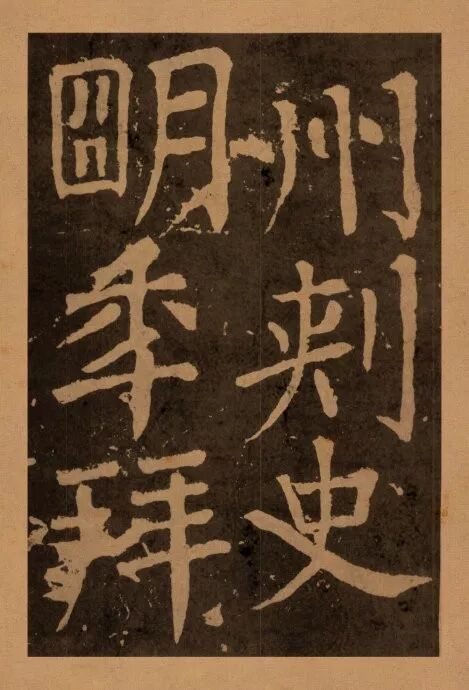 州刺史
明年拜